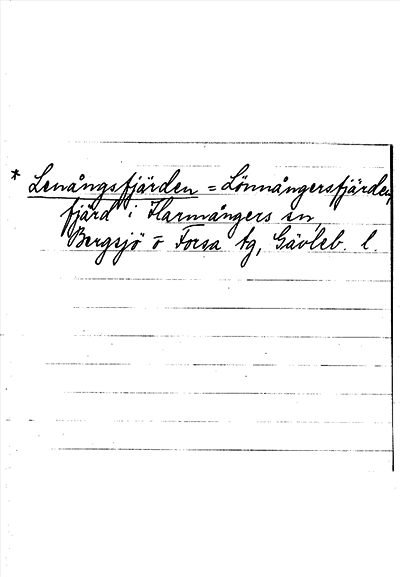 * Lenångsfjärden = Lönnångersfjärden,
fjärd i Harmångers sn,
Bergsjö o Forsa tg, Gävleb. l.